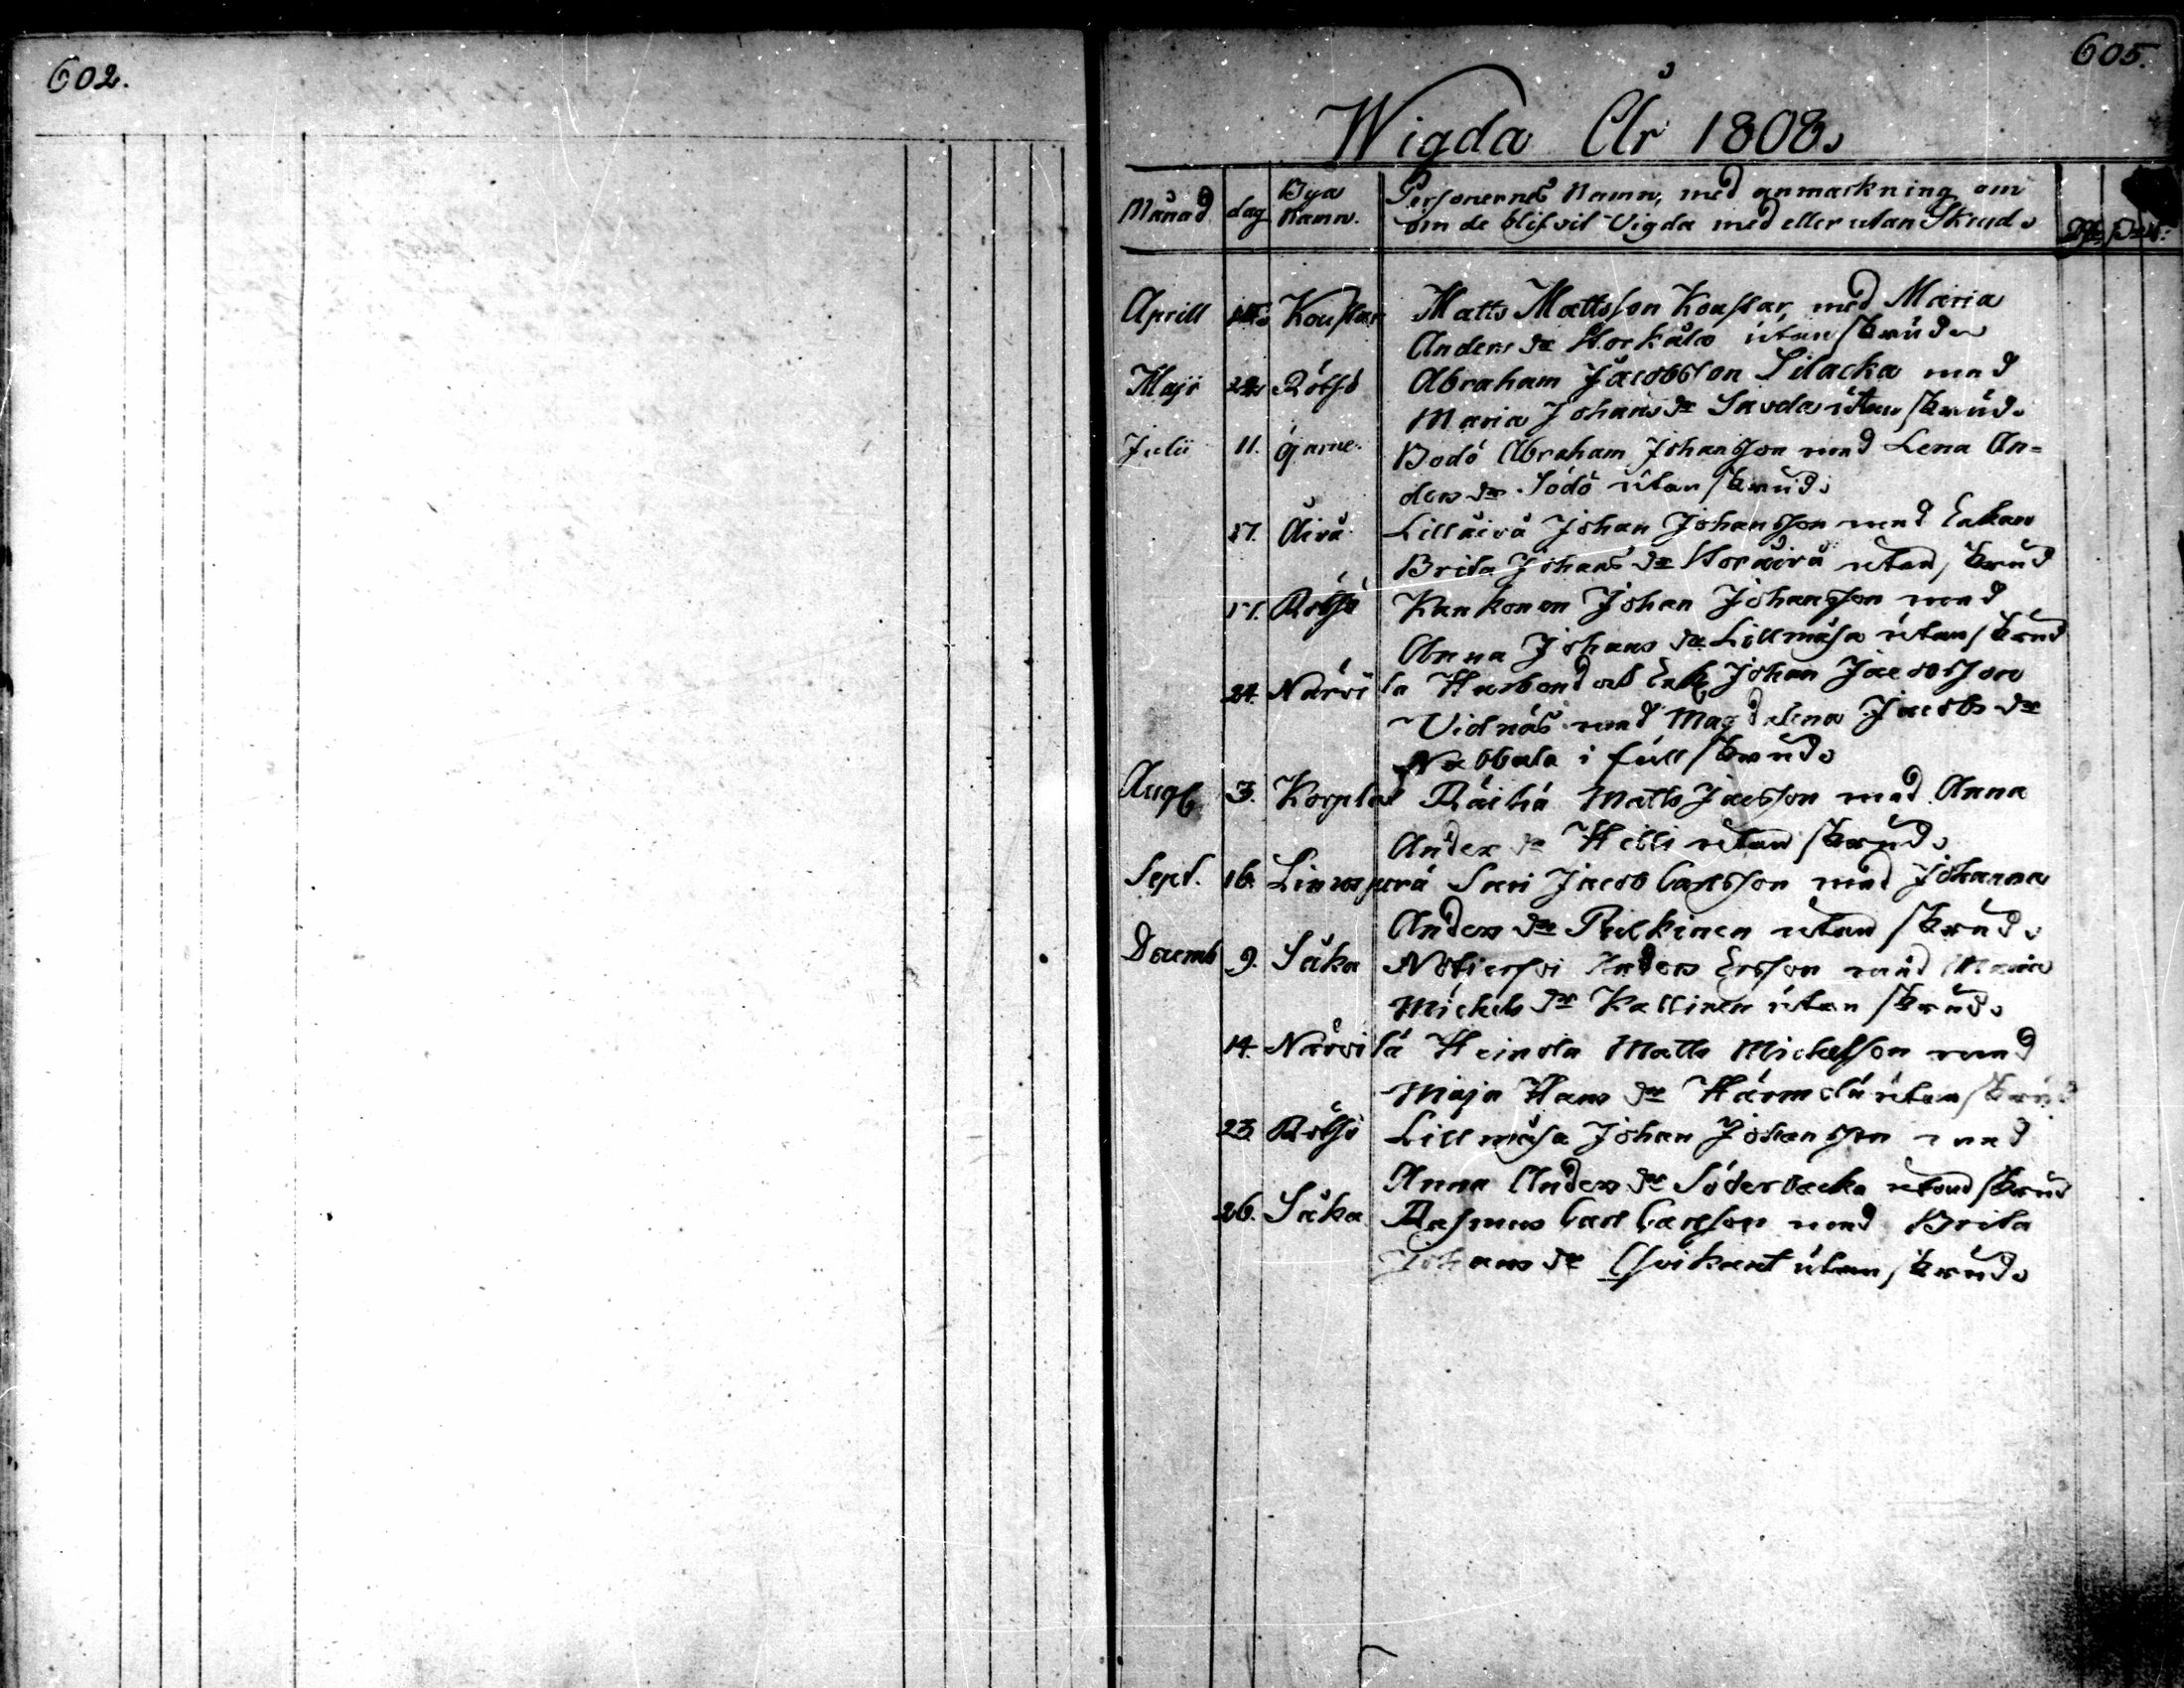 602.
605.
Wigda År 1808.
Månad dag Bya Namn. Personernes Namn, med anmärkning om
om de blifvit Vigda med eller utan Skrud.
Aprill Kouslar Matts Mattsson Kouslar, med Maria
Anders dr Storkåla utan skrud
Maji 24 Rötsö Abraham Jacobsson Silacka med
Maria Johans dr Savela utan skrud.
Julii 11. Öjarne. Bodö Abraham Johansson med Lena An=
ders dr Södö utan skrud.
17. Åivå Lillåivå Johan Johansson med Enkan
Brita Johans dr Storåivå utan skrud
17. Rötsö Kankonen Johan Johansson med
Anna Johans dr Lillmåsa utan skrud
24. Närvila Husbond och Enkl Johan Jacobsson
Vidnäs med Magdalena Jacobs dr
Nabbala i full skrud.
Aug 3. Korpla Räihä Matts Jacsson med Anna
Anders dr Hilli utan skrud.
Sept. 16. Linnusperä Sari Jacob Carlsson med Johanna
Anders dr Pulkinen utan skrud.
Decemb 9. Såka Anders Ersson med Maria
Michels dr Kallinen utan skrud.
14. Närvilä Heinola Matts Mickelsson med
Maja Hans dr Härmälä utan skrud
23. Rötsö Lillmåsa Johan Johansson med
Anna Anders dr Söderbacka utan skrud
26. Såka Rasmus Carl Carlsson med Brita
Johans dr utan skrud.